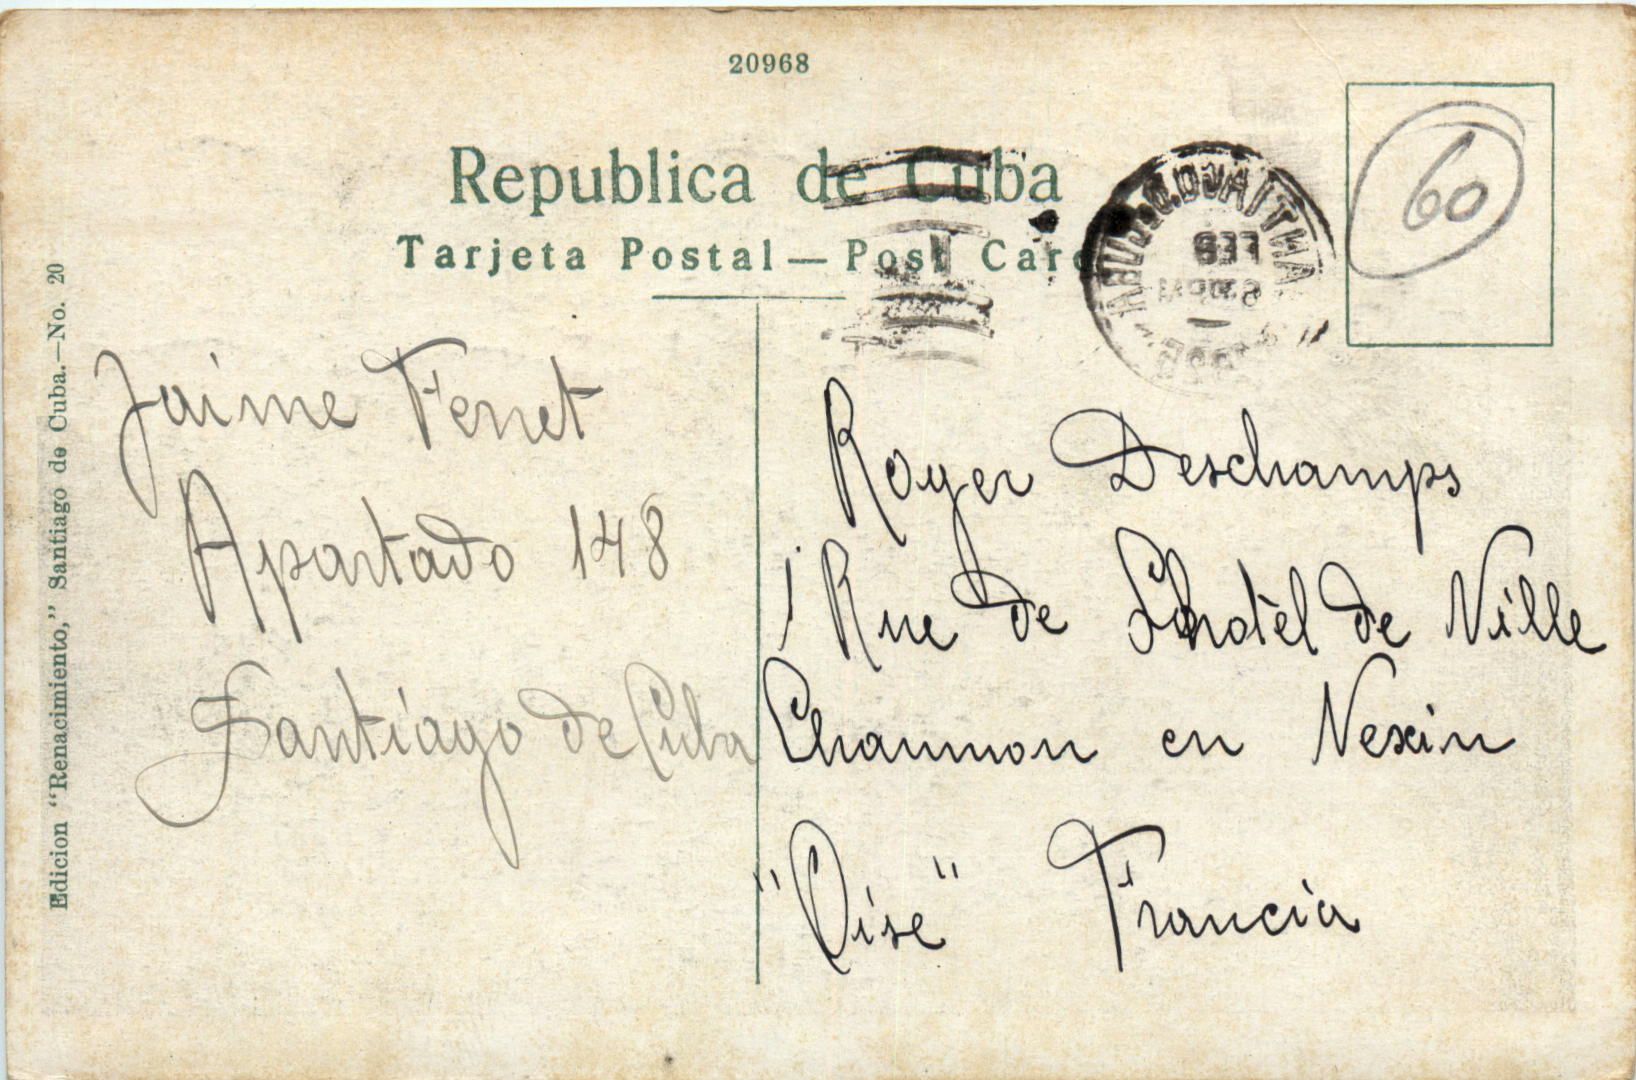 20968
Republica de Cuba
Tarjeta Postal — Post Card
60
FEB
Edicion "Renacimiento," Santiago de Cuba.—No. 20
Jaime Ferret
Apartado 148
Santiago de Cuba
Roger Deschamps
1 Rue de Lhotèl de Ville
Chaumon en Vexin
"Oise" Francia